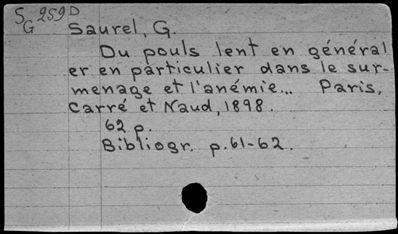 S 259D
G
Saurel, G.
Du pouls lent en général
er en particulier dans le sur-
menage et l'anémie... Paris,
Carré et Naud, 1898.
62 p.
Bibliogr. p.61-62.